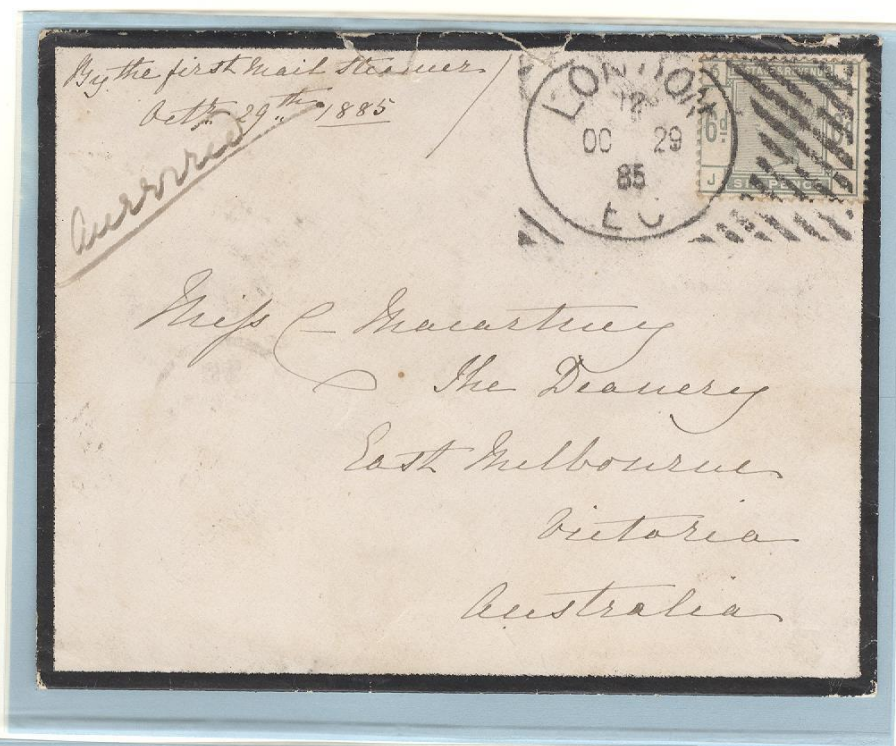 By the first Mail Steamer
Octr 29th 1885
LONDON
12
OC 29
85
EC
6d
POSTAGE & REVENUE
J
SIXPENCE
Miss Macartney
The Deanery
East Melbourne
Victoria
Australia